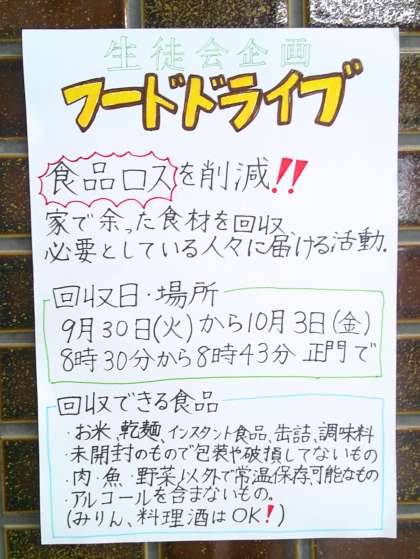 生徒会企画
フードドライブ
食品ロスを削減!!
家で余った食材を回収、
必要としている人々に届ける活動.
回収日・場所
9月30日(火)から10月3日(金)
8時30分から8時43分 正門で
回収できる食品
・お米、乾麺、インスタント食品、缶詰、調味料
・未開封のもので包装や破損してないもの
・肉・魚・野菜以外で常温保存可能なもの
・アルコールを含まないもの。
(みりん、料理酒はOK!)